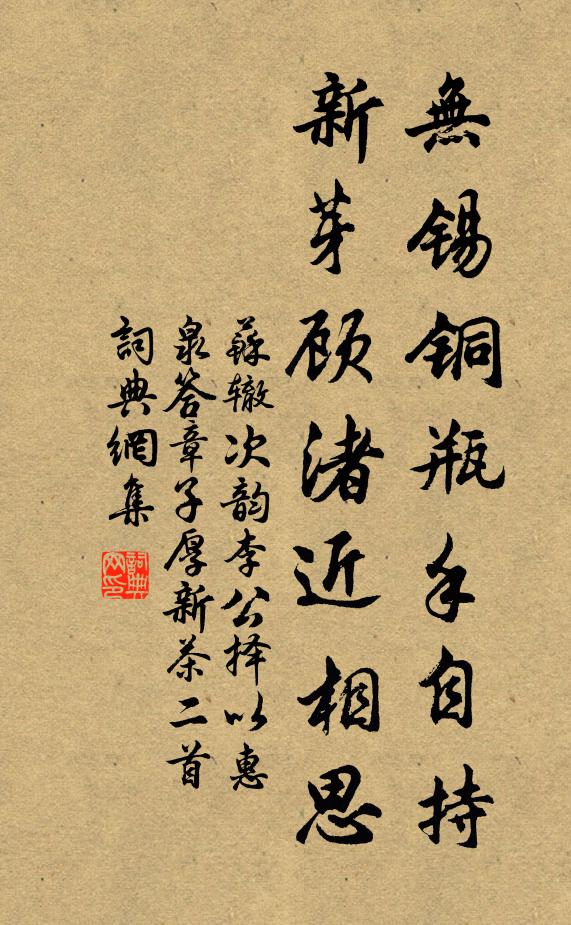 無錫銅瓶手自持
新芽顾渚近相思
蘇辙次韵李公择以惠
泉答章子厚新茶二首
詞典網集
詞典网印